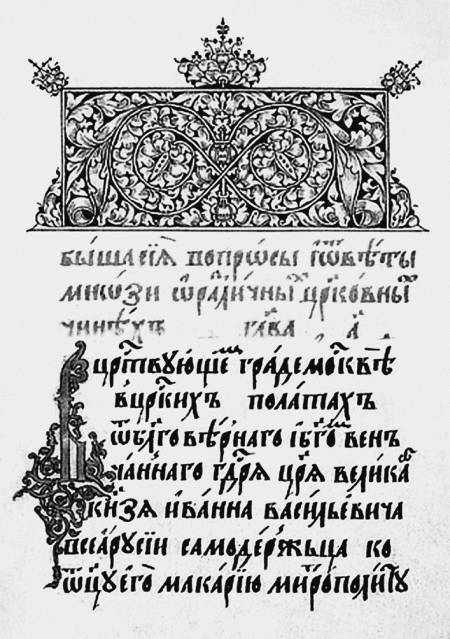 быша сїѧ вопрѡсы і ѿвѣты
мнѡзи ѡ разли́чныⷯ црⷭ҇ко́вныⷯ
чинѣхъ гл҃ва а҃
В црⷭ҇твующеⷨ гра́де москвѣ
в црⷭ҇кихъ пола́тахъ
ѿ бл҃гове́рнаго і бг҃оⷨ вен
ча́ннаго гдⷭ҇рѧ цр҃ѧ великаⷢ
кн҃ѕѧ ива́нна васи́льевича
всеа рꙋсіи самоде́ржьца ко
ѿцꙋ его̀ макарїю митрополи́тꙋ